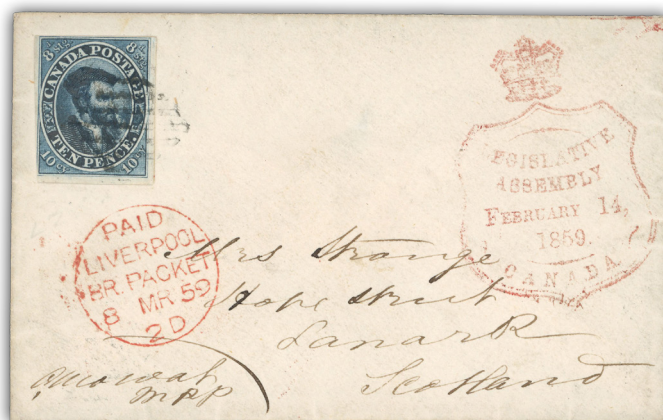 8 STG.
CANADA POSTAGE
TEN PENCE
10 CY.
10 CY.
LEGISLATIVE
ASSEMBLY
FEBRUARY 14,
1859.
CANADA
PAID
LIVERPOOL
BR. PACKET
8 MR 59
2D
Mrs Strange
Hope Street
Lanark
Scotland
MPP